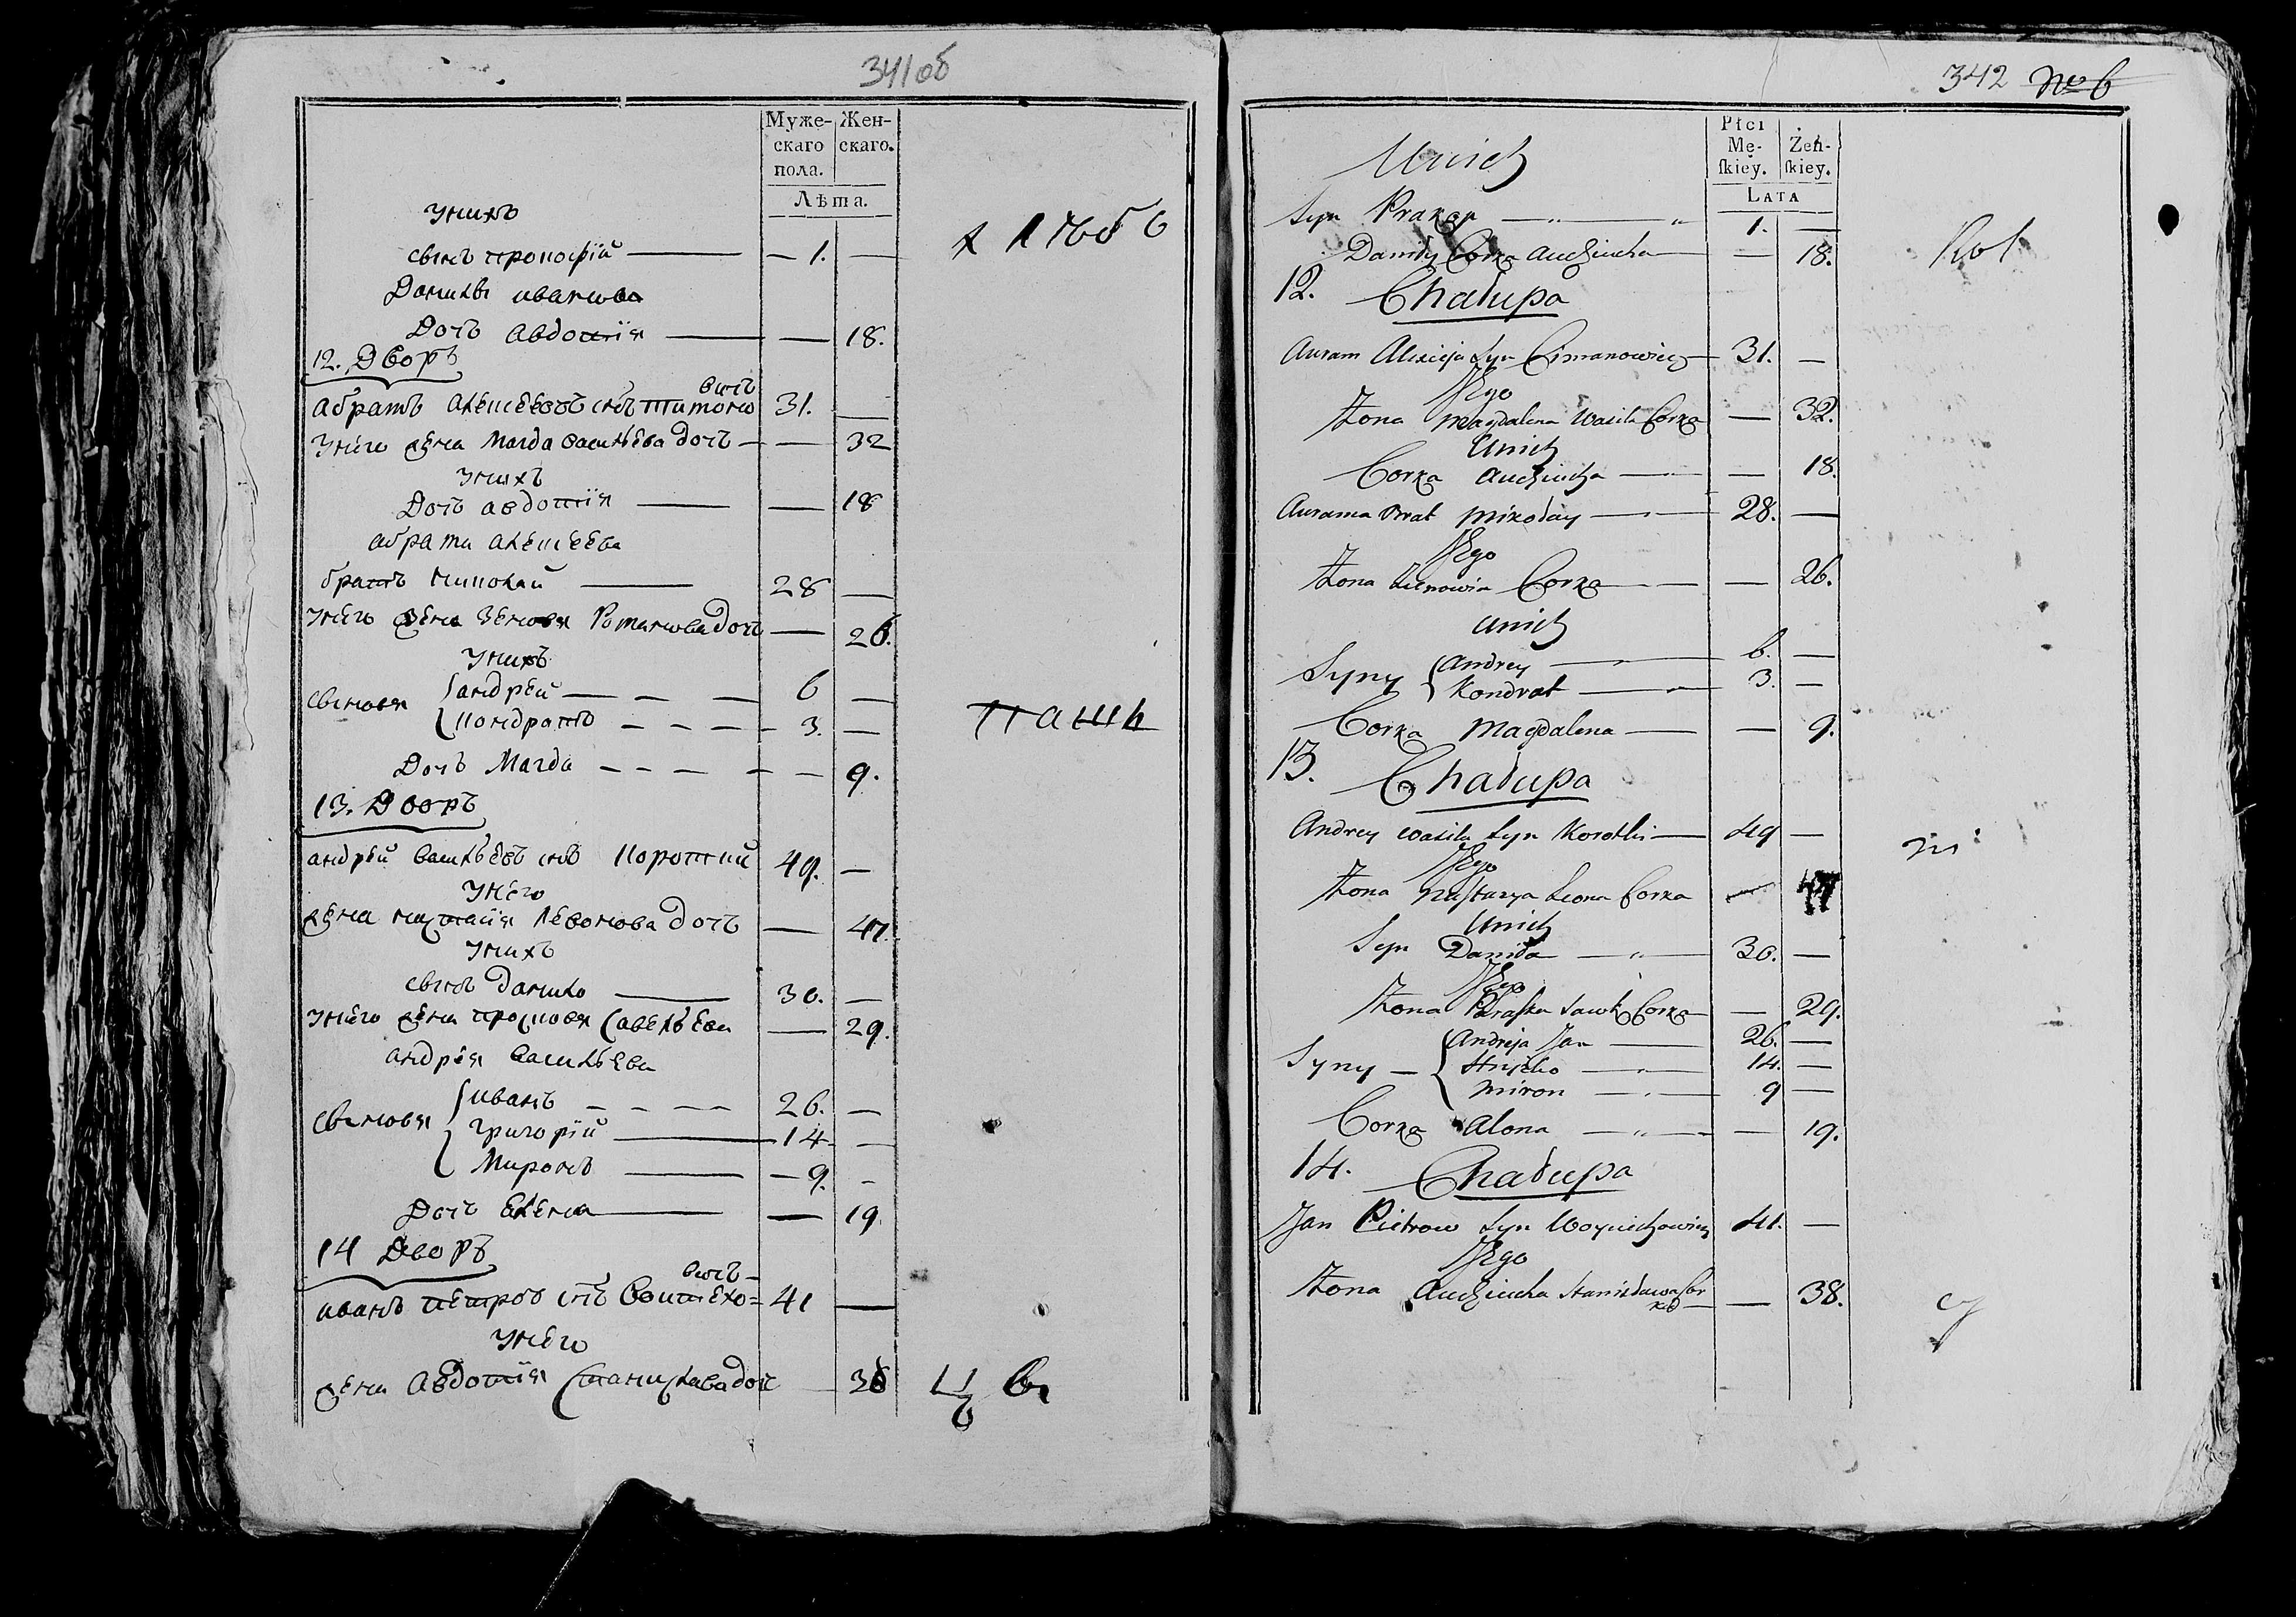 341об
Муже-
скаго
пола.
Жен-
скаго.
Лѣта.
унихъ
сынъ прокофій — 1. —
Данилы иванова
Дочь Авдотія — — 18.
12. Дворъ
вичъ
Абрамъ Алексеевъ снъ 31. —
унего жена Магда васильева дочь — — 32
унихъ
Дочь авдотія — — 18
абрама алексеева
братъ николай — 28 —
унего жена Зеновя Романова дочь — 26.
унихъ
сыновя андрей — 6 —
кондратъ — 3. —
Дочь Магда — — 9.
13. Дворъ
андрей васильевъ снъ Короткий 49. —
унего
жена настасія Левонова дочь — 47.
унихъ
сынъ данило — 30. —
унего жена просковя савельева — 29.
андрея васильева
сыновя иванъ — 26. —
григорій — 14 —
Миронъ — 9. —
Дочь Елена — — 19
14 Дворъ
вичъ
иванъ петровъ снъ Войтехо= 41 —
унего
жена Авдотія станиславова дочь 38
342 № 6
Płci
Mę-
skiey.
Żeń-
skiey.
LATA
Unich
Syn Prakop — 1. —
Daniły Corka Audziucha — — 18.
12. Chałupa
Auram Alexieja Syn Cimanowicz — 31. —
Jego
Żona Magdalena Wasila Corka — 32.
Unich
Corka Audziucha — — 18.
Aurama Brat Mikołay — 28. —
Jego
Żona Zienowia Corka — — 26.
Unich
Syny Andrey — 6. —
Kondrat — 3. —
Corka Magdalena — — 9.
13. Chałupa
Andrey Wasila Syn Korotki — 49 —
Jego
Żona Nastazya Leona Corka — 47
Unich
Syn Daniła — 30. —
Jego
Żona Paraska Sawki Corka — 29.
Syny — Andreja Jan — 26. —
Hryćko — 14. —
Miron — 9 —
Corka Alona — — 19.
14. Chałupa
Jan Pietrow Syn Woyciechowicz 41. —
Jego
Żona Audziucha Stanisława Cor
ka — — 38.